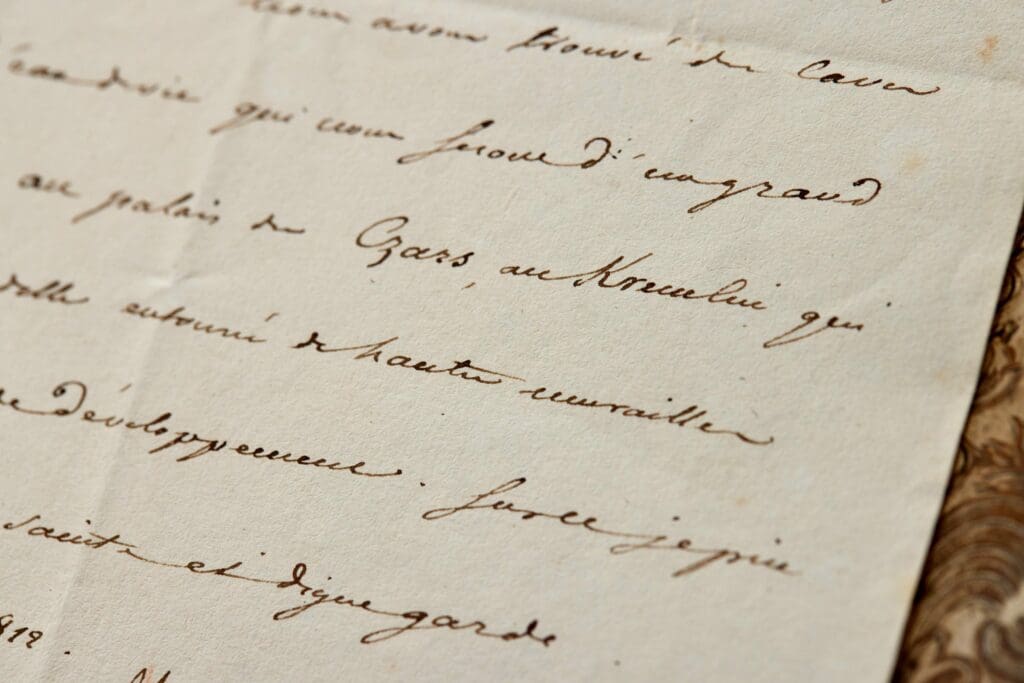 nous avons trouvé des caves
eau de vie qui nous seront d'un grand
au palais des Czars, au Kremlin qui
entouré de hautes murailles
développement. Sur ce je prie
sainte et digne garde
812.